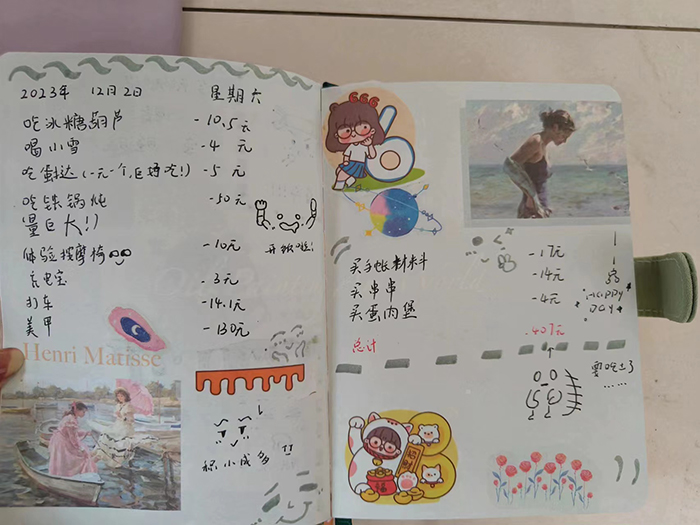 2023年 12月2日 星期六
吃冰糖葫芦 -10.5元
喝小雪 -4元
吃蛋达(一元一个,巨好吃!) -5元
吃铁锅炖 -50元
量巨大!)
体验按摩椅 -10元
开张啦!
充电宝 -3元
打车 -14.1元
美甲 -130元
Henri Matisse
积小成多
666
买手帐材料 -17元
买串串 -14元
买蛋肉堡 -4元
HAPPY
DAY
总计 -407元
要吃土了
......
福